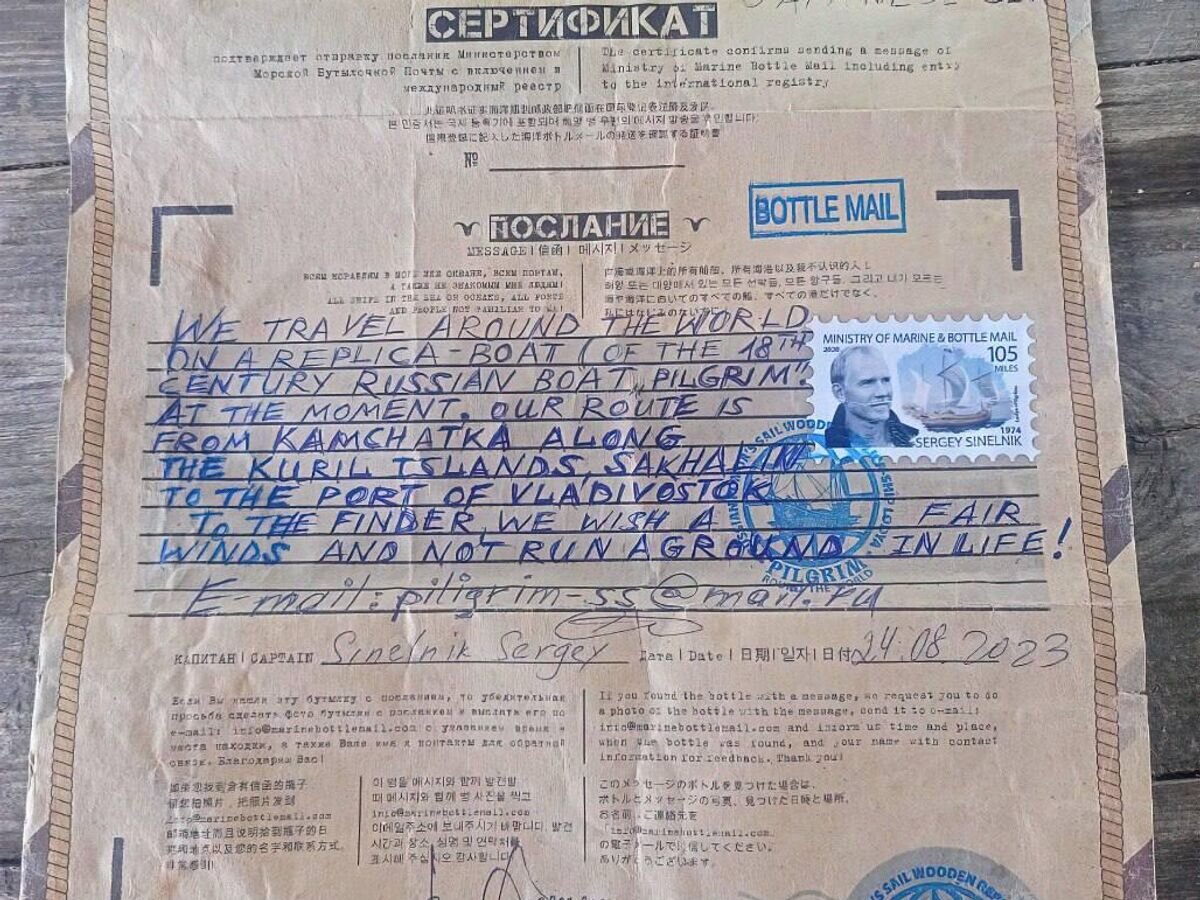 СЕРТИФИКАТ
подтверждает отправку послания Министерством
Морской Бутылочной Почты с включением в
международный реестр
The certificate confirms sending a message of
Ministry of Marine Bottle Mail including entry
to the international registry
国際登録に記入した海洋ボトルメールの発送を確認する証明書
№
BOTTLE MAIL
ПОСЛАНИЕ
MESSAGE | 信函 | 메시지 | メッセージ
ВСЕМ КОРАБЛЯМ В МОРЕ ИЛИ ОКЕАНЕ, ВСЕМ ПОРТАМ,
А ТАКЖЕ НЕ ЗНАКОМЫМ МНЕ ЛЮДЯМ!
ALL SHIPS IN THE SEA OR OCEANS, ALL PORTS
AND PEOPLE NOT FAMILIAR TO ME!
WE TRAVEL AROUND THE WORLD
ON A REPLICA-BOAT (OF THE 18TH
CENTURY RUSSIAN BOAT „PILGRIM"
AT THE MOMENT. OUR ROUTE IS
FROM KAMCHATKA ALONG
THE KURIL ISLANDS, SAKHALIN
TO THE PORT OF VLADIVOSTOK
TO THE FINDER, WE WISH A FAIR
WINDS AND NOT RUN AGROUND IN LIFE!
E-mail: piligrim-ss@mail.ru
MINISTRY OF MARINE & BOTTLE MAIL
2020
105
MILES
1974
SERGEY SINELNIK
PILGRIM
КАПИТАН | CAPTAIN Sinelnik Sergey Дата | Date | 日期 | 일자 | 日付 24.08 2023
Если Вы нашли эту бутылку с посланием, то убедительная
просьба сделать фото бутылки с посланием и выслать его по
e-mail: info@marinebottlemail.com с указанием время и
места находки, а также Ваше имя и контакты для обратной
связи. Благодарим Вас!
If you found the bottle with a message, we request you to do
a photo of the bottle with the message, send it to e-mail:
info@marinebottlemail.com and inform us time and place,
when the bottle was found, and your name with contact
information for feedback. Thank you!
如果您找到含有信函的瓶子
请您拍照片, 把照片发到
info@marinebottlemail.com
邮箱地址而且说明拾到瓶子的日
期和地点以及您的名字和联系方式.
非常感谢!
이 병을 메시지와 함께 발견할
때 메시지와 함께 병 사진을 찍고
info@marinebottlemail.com
이메일주소에 보내주시기 바랍니다. 발견
시간과 장소, 성명 및 연락처를
표시해 주십시오 감사합니다!
このメッセージのボトルを見つけた場合は、
ボトルとメッセージの写真、見つけた日時と場所、
お名前、ご連絡先を
「info@marinebottlemail.com」
の電子メールでに信してください。
ありがとうございます。
SAIL WOODEN